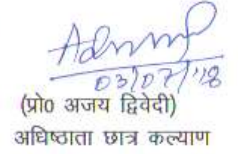 03/07/18
(प्रो0 अजय द्विवेदी)
अधिष्ठाता छात्र कल्याण